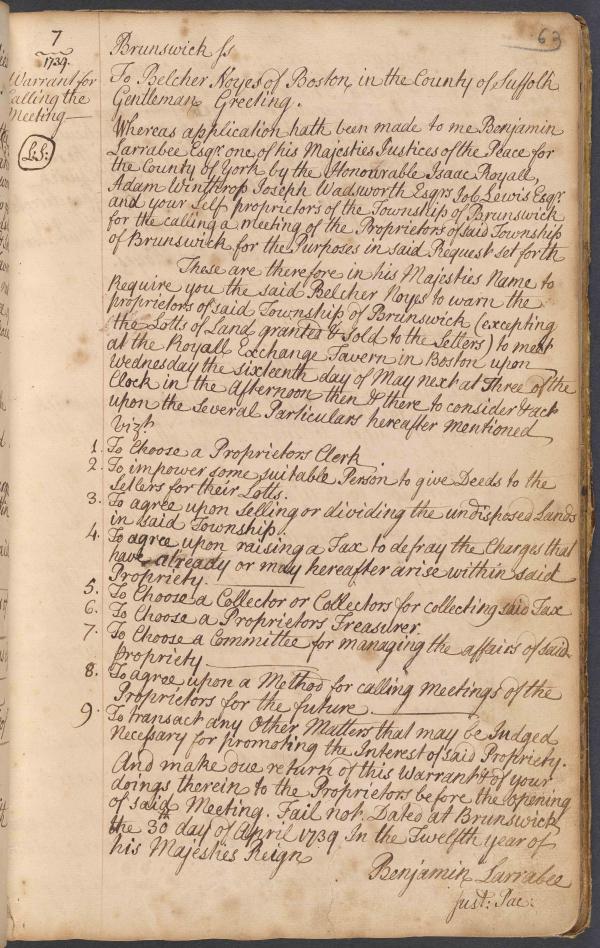 63
7
1739.
Warrant for
Calling the
Meeting
L.S:
Brunswick ss
To Belcher Noyes of Boston in the County of Suffolk
Gentleman Greeting.
Whereas application hath been made to me Benjamin
Larrabee Esqr. one of his Majesties Justices of the Peace for
the County of York by the Honourable Isaac Royall,
Adam Winthrop Joseph Wadsworth Esqrs Job Lewis Esqr
and your Self proprietors of the Township of Brunswick
for the calling a meeting of the Proprietors of said Township
of Brunswick for the Purposes in said Request set forth
These are therefore in his Majesties Name to
Require you the said Belcher Noyes to warn the
proprietors of said Township of Brunswick (excepting
the Lotts of Land granted & Sold to the Setlers) to meet
at the Royall Exchange Tavern in Boston upon
Wednesday the sixteenth day of May next at Three of the
Clock in the afternoon then & there to consider & act
upon the Several Particulars hereafter mentioned
Vizt.
1. To Choose a Proprietors Clerk.
2. To impower some suitable Person to give Deeds to the
Setlers for their Lotts.
3. To agree upon Selling or dividing the undisposed Lands
in said Township.
4. To agree upon raising a Tax to defray the Charges that
have already or may hereafter arise within said
Propriety.
5. To Choose a Collector or Collectors for collecting said Tax
6. To Choose a Proprietors Treasurer.
7. To Choose a Committee for managing the affairs of said
Propriety
8. To agree upon a Method for calling meetings of the
Proprietors for the future.
9. To transact any Other Matters that may be Judged
Necessary for promoting the Interest of said Propriety.
And make due return of this Warrant & of your
doings therein to the Proprietors before the opening
of said Meeting. Fail not. Dated at Brunswick
the 30th day of April 1739 In the Twelfth year of
his Majesties Reign
Benjamin Larrabee
Just: Pac: